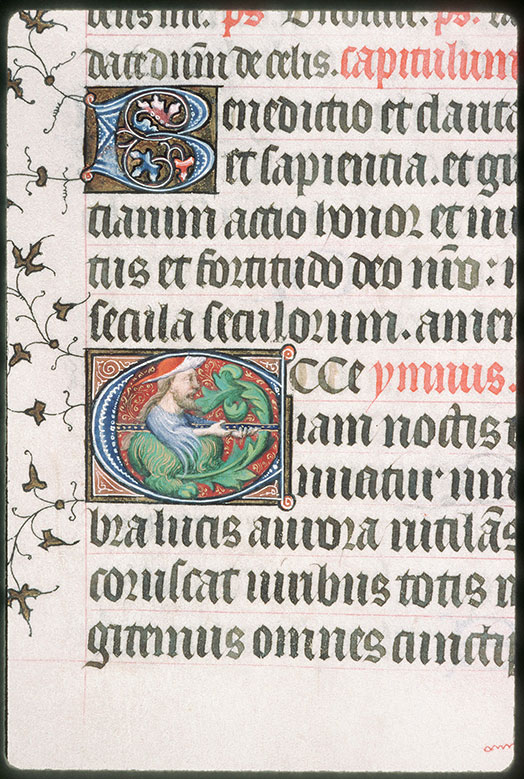 ps ps.
date dn̄m de celis. capitulum
Benedictio et clarita
et sapientia. et gr
tiarum actio honor et uir
tus et fortitudo deo nr̄o: i
secula seculorum. amen
ECCe ymnus.
iam noctis t
nuatur um
bra lucis aurora rutilās
coruscat niribus totis r
gitemus omnes cunctip